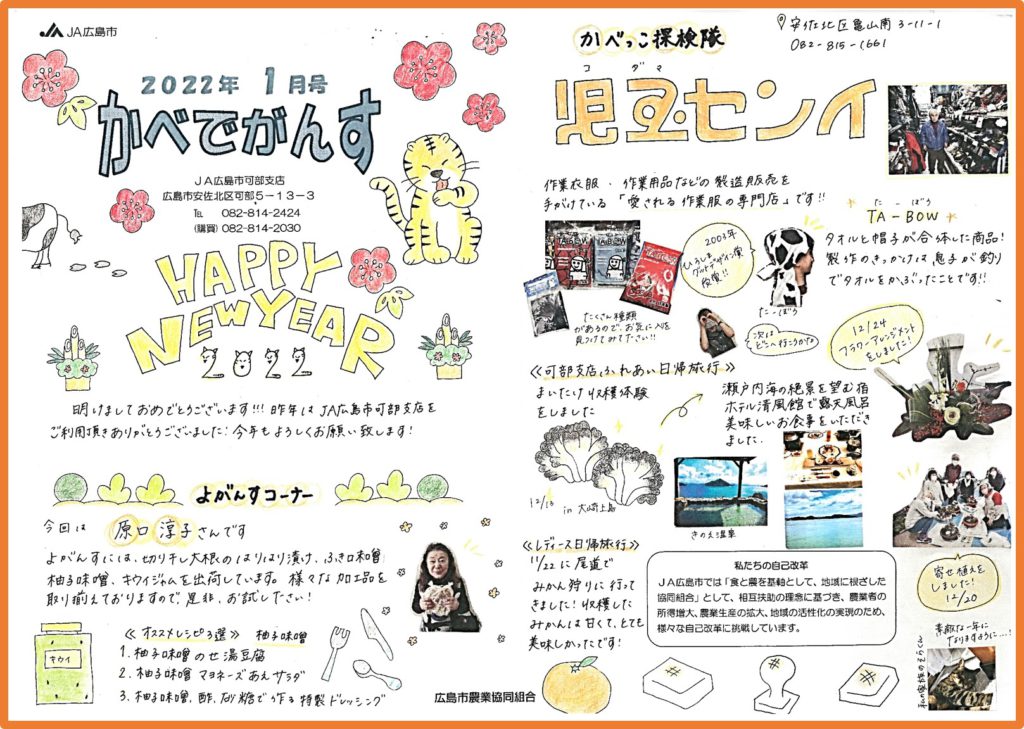 JA広島市
2022年 1月号
かべでがんす
JA広島市可部支店
広島市安佐北区可部5-13-3
℡ 082-814-2424
(購買) 082-814-2030
HAPPY
NEW YEAR
2022
明けましておめでとうございます!!! 昨年はJA広島市可部支店を
ご利用頂きありがとうございました! 今年もよろしくお願い致します!
よがんすコーナー
今回は 原口 淳子さんです
よがんすには、切り干し大根のはりはり漬け、ふき味噌
柚子味噌、キウイジャムを出荷しています。様々な加工品を
取り揃えておりますので、是非、お試しください!
キウイ
≪オススメレシピ3選≫ 柚子味噌
1. 柚子味噌のせ湯豆腐
2. 柚子味噌マヨネーズあえサラダ
3. 柚子味噌、酢、砂糖で作る特製ドレッシング
広島市農業協同組合
かべっこ探検隊
安佐北区亀山南3-11-1
082-815-1661
コダマ
児玉センイ
作業衣服、作業用品などの製造販売を
手がけている「愛される作業服の専門店」です!!
たーぼう
TA-BOW
タオルと帽子が合体した商品!
製作のきっかけは息子が釣り
でタオルをかぶったことです!!
2003年
ひろしま
グッドデザイン賞
受賞!!
TA-BOW
たくさん種類
があるので、お気に入りを
見つけてみて下さい!!
たーぼう
次は
どこへ行こうかな
12/24
フラワーアレンジメント
をしました!
≪可部支店ふれあい日帰旅行≫
まいたけ収穫体験
をしました
12/13
in 大崎上島
瀬戸内海の絶景を望む宿
ホテル清風館で露天風呂
美味しいお食事をいただき
ました.
きのえ温泉
≪レディース日帰旅行≫
11/22に尾道で
みかん狩りに行って
きました! 収穫した
みかんは甘くて、とても
美味しかったです!
私たちの自己改革
JA広島市では「食と農を基軸として、地域に根ざした
協同組合」として、相互扶助の理念に基づき、農業者の
所得増大、農業生産の拡大、地域の活性化の実現のため、
様々な自己改革に挑戦しています。
寄せ植えを
しました!
12/20
素敵な一年に
なりますように…!
私の家族のそらくん